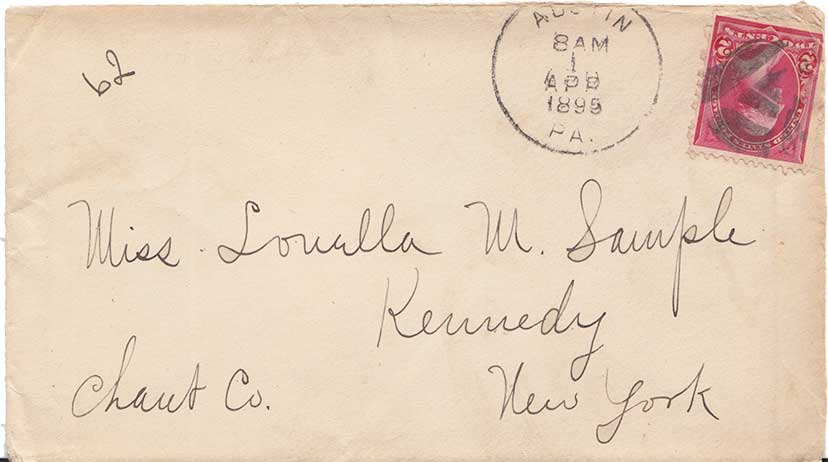 AUSTIN
8 AM
1
APR
1895
PA.
2 2
62
Miss Louella M. Sample
Kennedy
Chaut Co.
New York